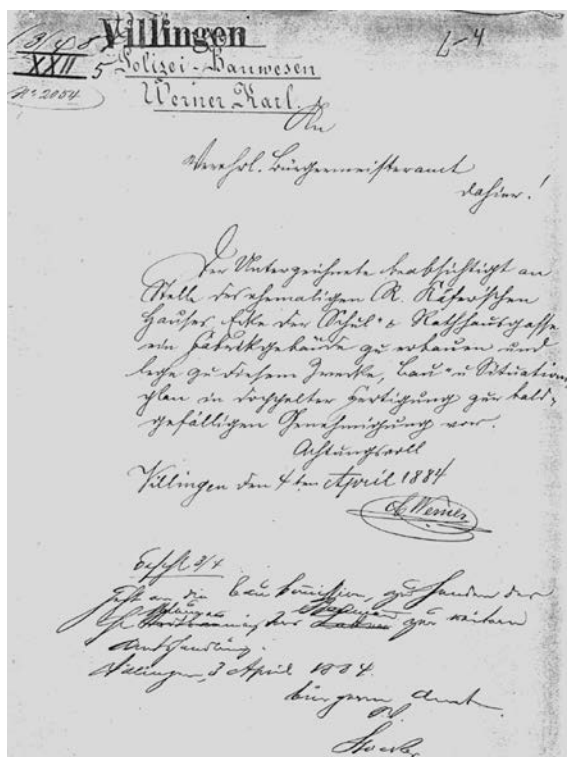 Villingen
XXII 5 Polizei-Bauwesen
No 2054 Werner Karl.
An
Verehrl. Bürgermeisteramt
dahier!
Der Unterzeichnete beabsichtigt an
Stelle des ehemaligen R. Käfer'schen
Hauses, Ecke der Schul- & Rathhausgasse
ein Fabrikgebäude zu erbauen und
lege zu diesem Zwecke, Bau- u Situations
plan in doppelter Fertigung zur bald-
gefälligen Genehmigung vor.
Achtungsvoll
Villingen den 4ten April 1884
Werner
Geht an die Baukommission, zu Handen des
zur weitern
Amtshandlung.
Villingen, 3 April 1884.